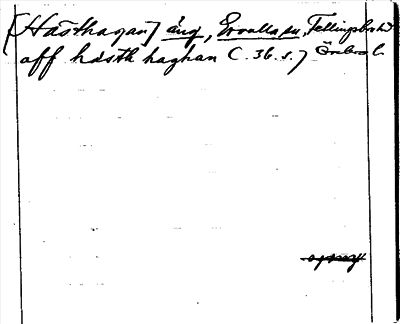 [Hästhagan] äng, Ervalla sn, Fellingsbro hd
aff hästh haghan C. 36. s. 7 Örebro l.